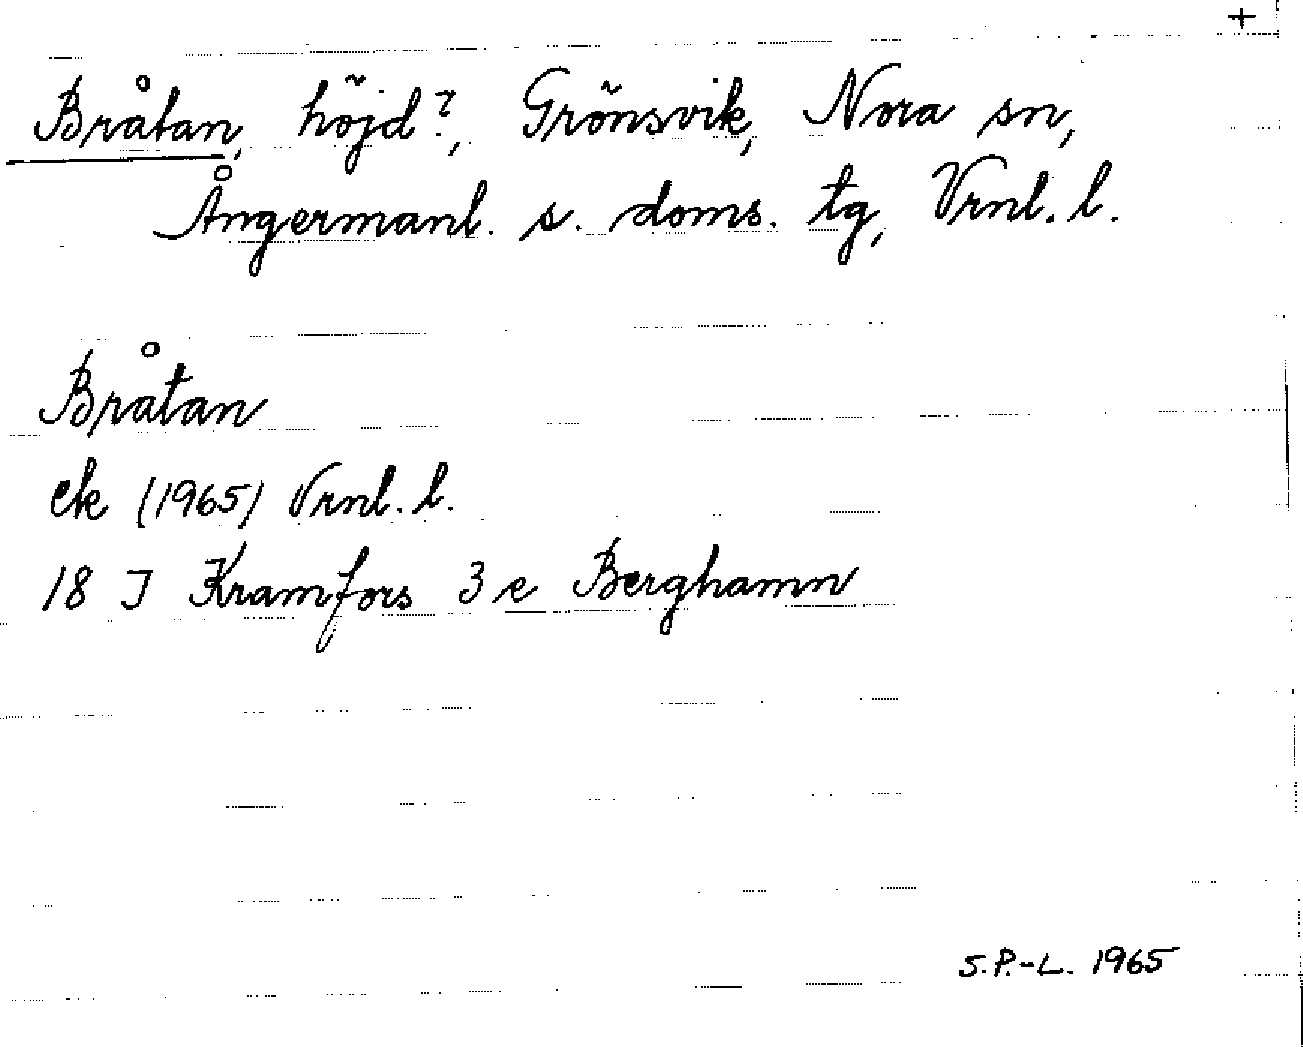 +
Bråtan, höjd?, Grönsvik, Nora sn,
Ångermanl. s. doms. tg, Vrnl. l.
Bråtan
ek (1965) Vrnl. l.
18 J Kramfors 3 e Berghamn
S.P.-L. 1965